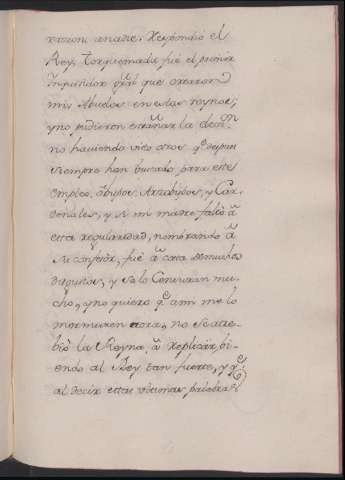 Respondió el
Rey, Torquemada fué el primer
Inquisidor gral que crearon
mis Abuelos en estos reynos,
y no pudieron estrañar la
no haviendo visto otros qe despues
siempre han buscado para este
empleo, Obispos, Arzobispos, y Car-
denales, y si mi madre faltò â
esta regularidad, nombrando â
su confesòr, fué â costa de muchos
disgustos, y se lo censuran mu-
cho, y no quiero qe ami me lo
murmuren aora, no se atre-
biò la Reyna â replicàr, bi-
endo al Rey tan fuerte, y qe
al decir estas ultimas palabras